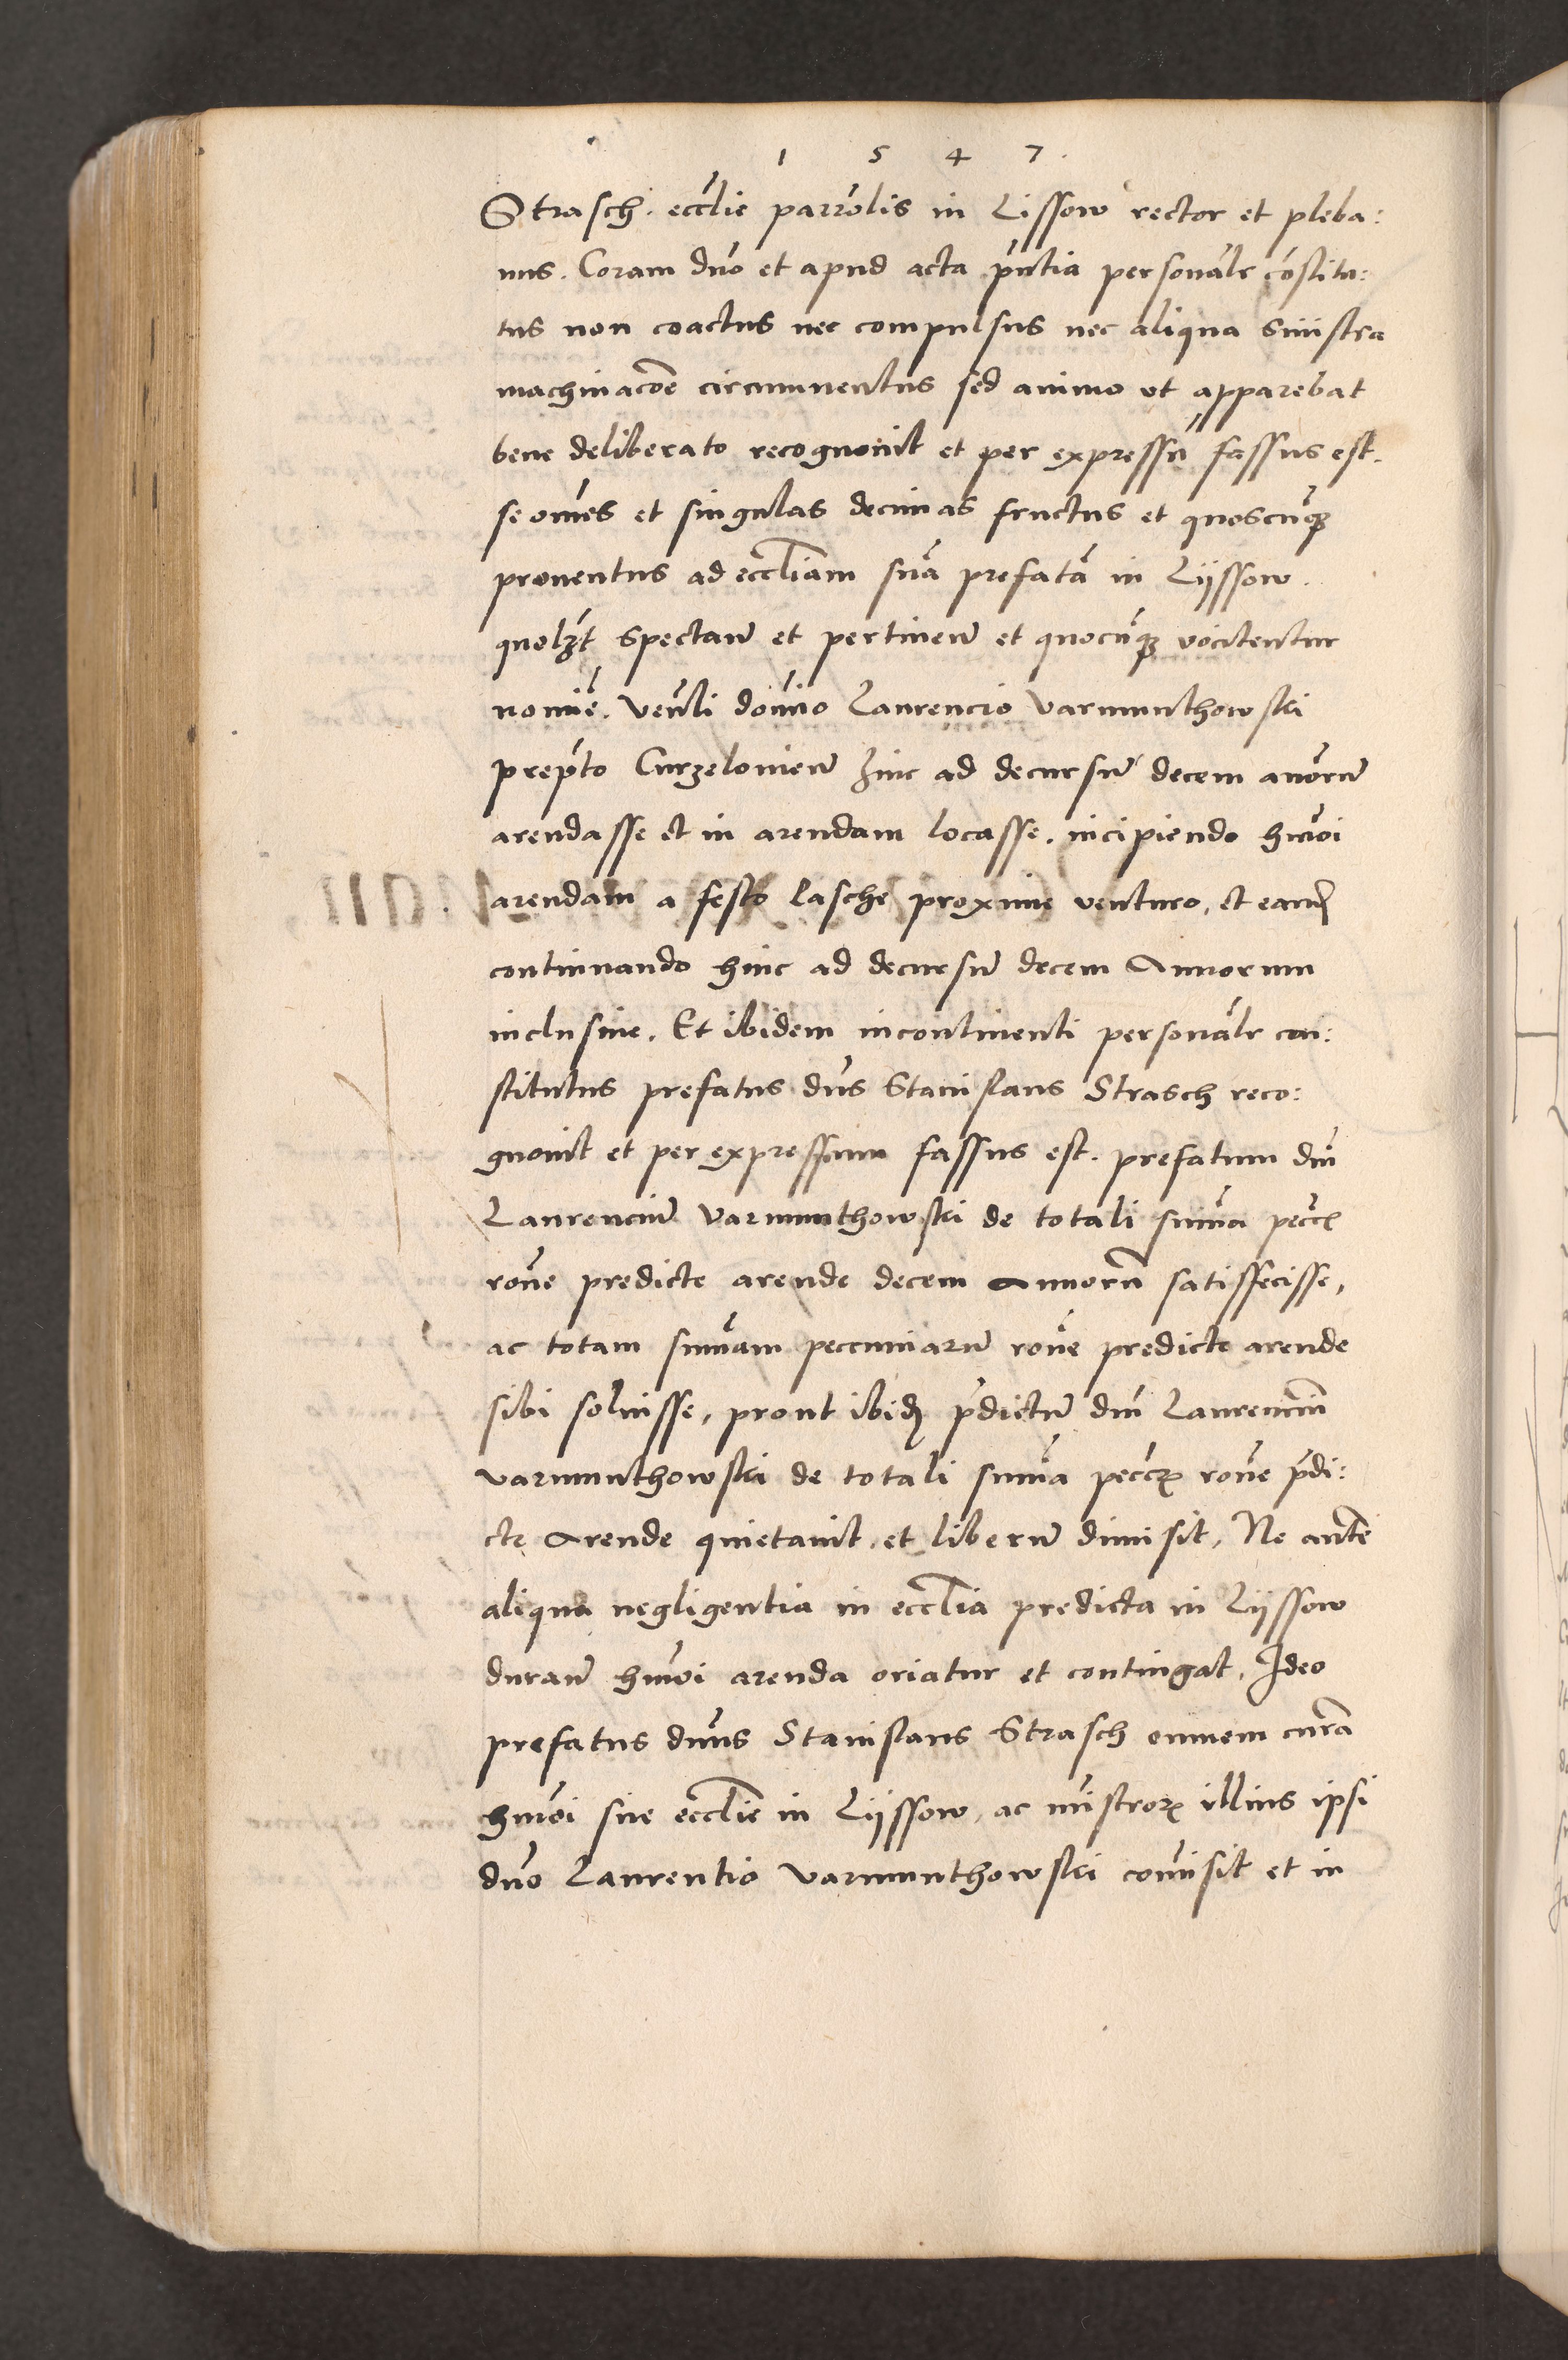 1 5 4 7.
Strasch. ecclie parrolis in Lissow rector et pleba:
nus. Coram dno et apud acta pntia personalr cõstitu:
tus non coactus nec compulsus nec aliqua sinistra
machinacõe circumuentus sed animo vt apparebat
bene deliberato recognouit et per expressũ fassus est.
se omes et singulas decimas fructus et quoscũqꝫ
prouentus ad eccliam suã prefatã in Lijssow.
quolꝫt spectañ et pertineñ et quocũqꝫ vocitentur
nomiẽ. Venli domino Laurencio Varmunthowski
prepto Curzelouieñ hinc ad decursũ decem annorũ
arendasse et in arendam locasse. incipiendo hmoi
arendam a festo Pasche proxime venturo, et eand
continuando hinc ad decursũ decem Annorum
inclusiue. Et ibidem incontinenti personalr con:
stitutus prefatus dns Stanislaus Strasch reco:
gnouit et per expressum fassus est. prefatum dnũ
Laurenciũ Varmunthowski de totali suma peccꝝ
rone predicte arende decem Annorũ satisfecisse,
ac totam sumam peccuniarũ rone predicte arende
sibi soluisse, prout ibidꝫ pdictũ dnũ Laurenciũ
varmunthowski de totali suma peccꝝ rone pdi:
cte Arende quietauit, et liberũ dimisit, Ne autẽ
aliqua negligentia in ecclia predicta in Lijssow
durañ hmoi arenda oriatur et contingat, Ideo
prefatus dnus Stanislaus Strasch omnem curã
hmoi sue ecclie in Lijssow, ac mistroꝝ illius ipsi
dno Laurentio varmunthowski comisit et in